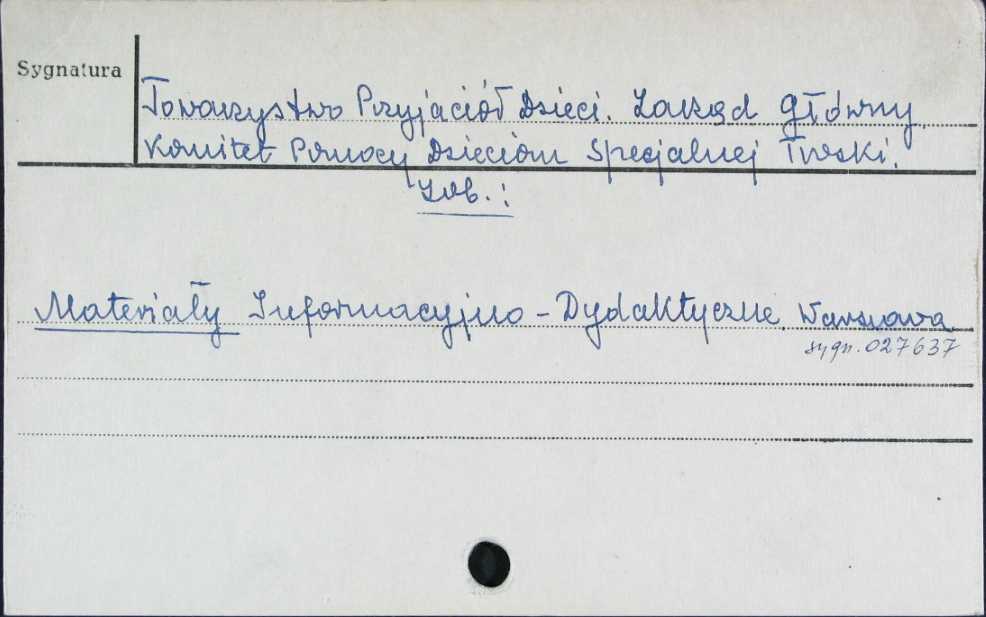 Sygnatura
Towarzystwo Przyjaciół Dzieci. Zarząd Główny
Komitet Pomocy Dzieciom Specjalnej Troski.
Zob.:
Materiały Informacyjno-Dydaktyczne Warszawa
sygn. 027637